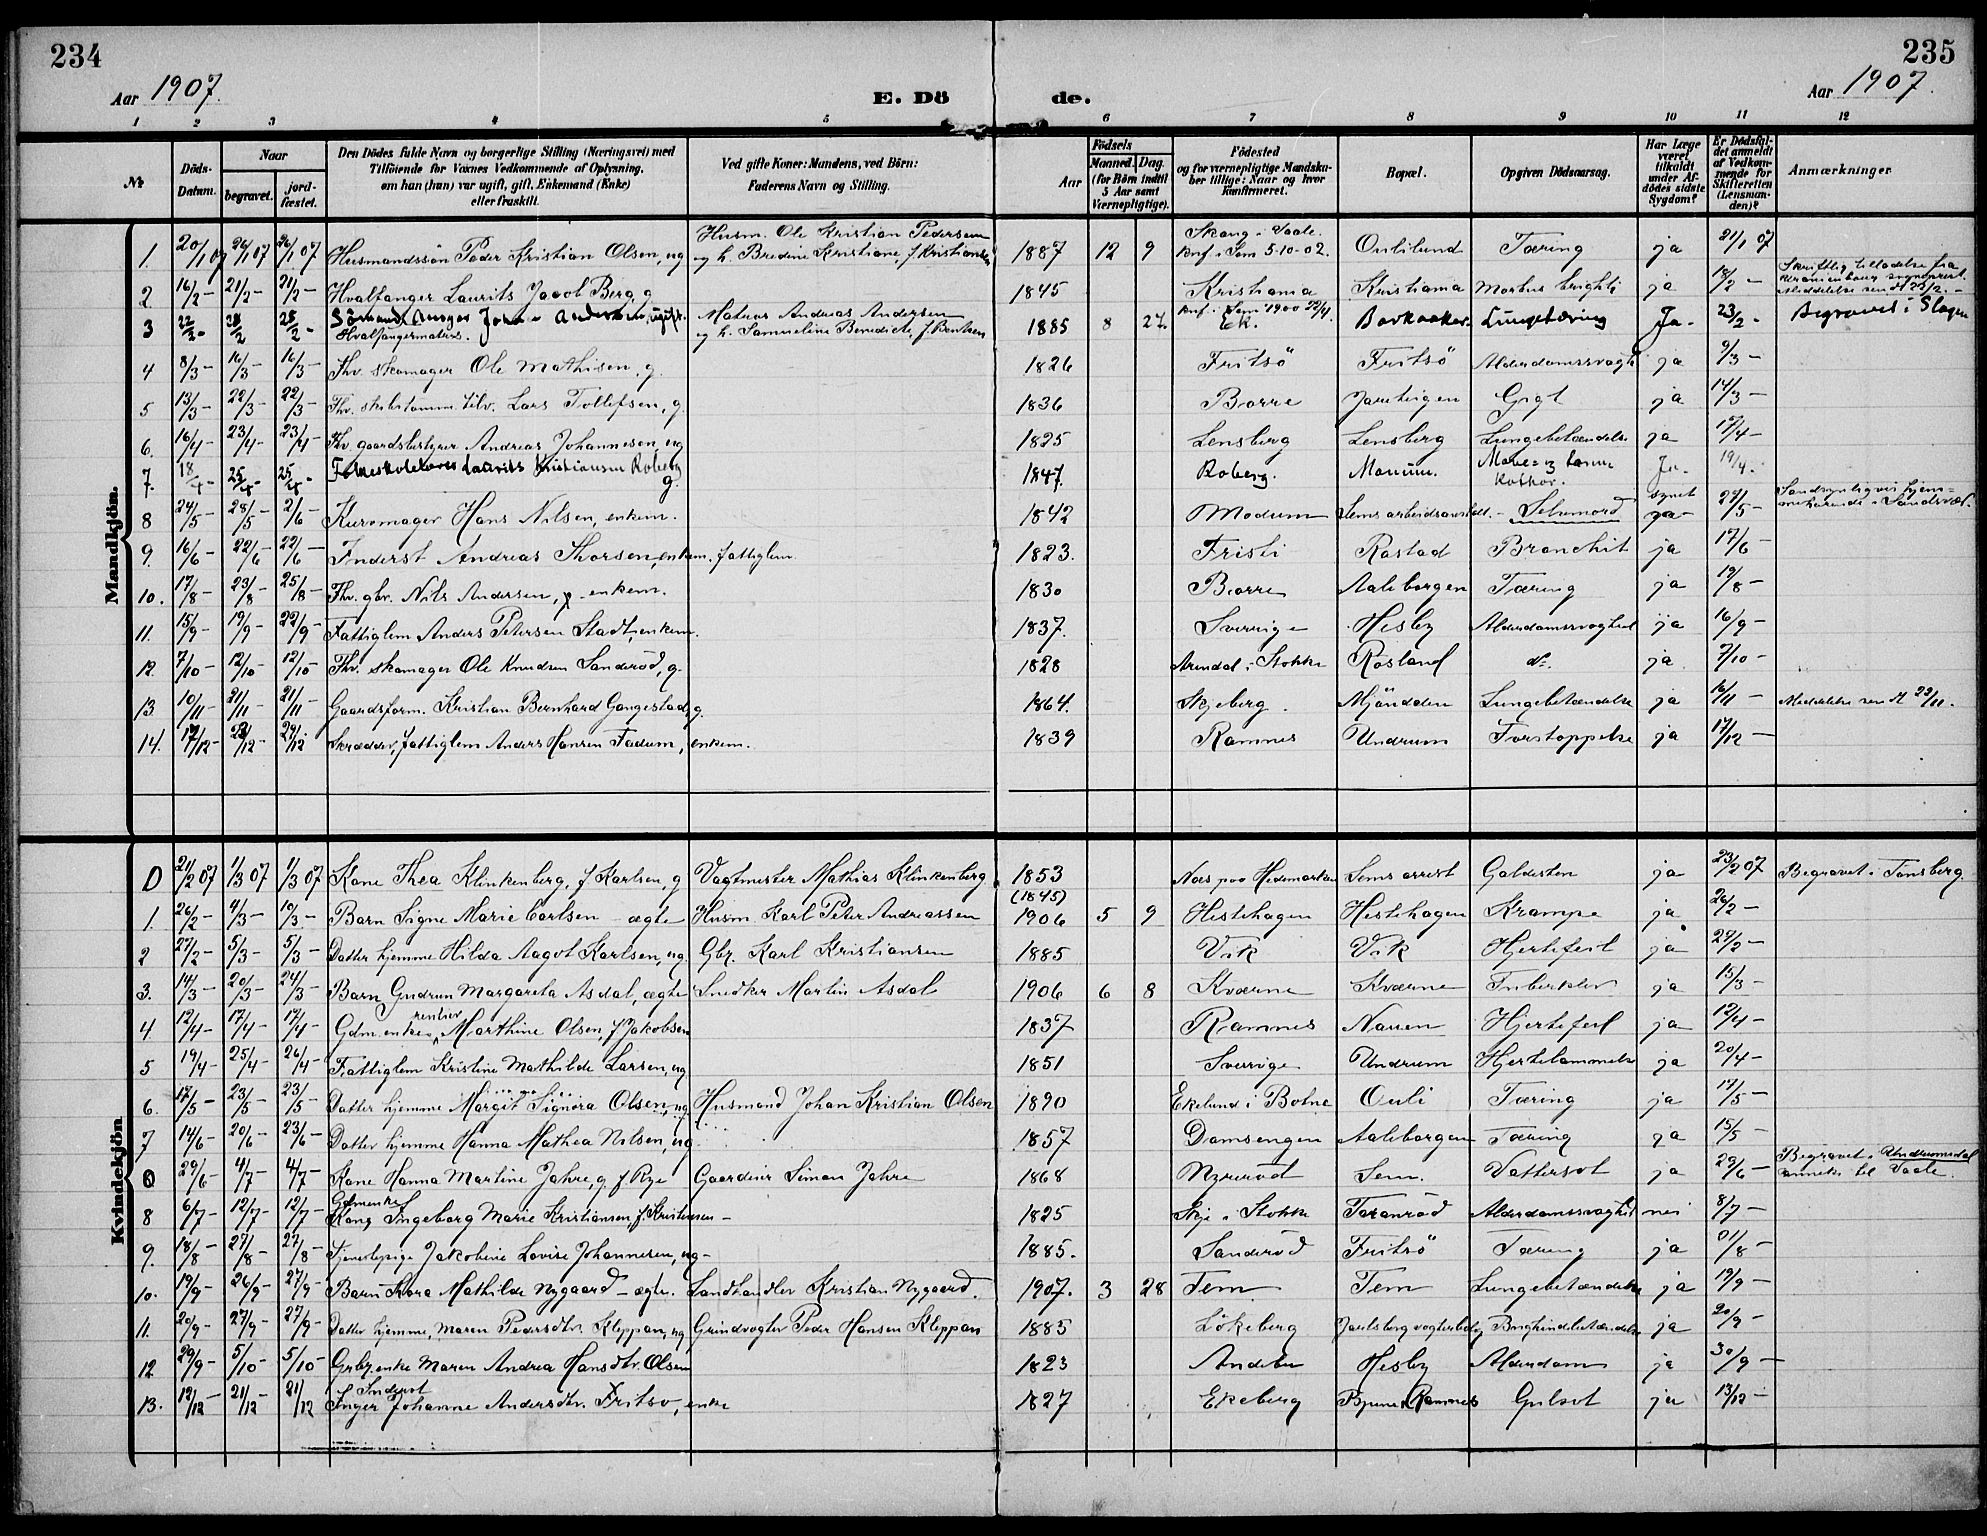 234
Aar 1907.
E. Dö
de.
235
Aar 1907.
1 2 3 4 5 6 7 8 9 10 11 12
№
Döds-
Datum.
Naar
begravet.
jord-
fæstet.
Den Dödes fulde Navn og borgerlige Stilling (Næringsvei) med
Tilföiende for Voxnes Vedkommende af Oplysning,
om han (hun) var ugift, gift, Enkemand (Enke)
eller fraskilt.
Ved gifte Koner: Mandens, ved Börn:
Faderens Navn og Stilling.
Födsels
Aar
Maaned. Dag.
(for Börn indtil
5 Aar samt
Værnepligtige).
Födested
og for værnepligtige Mandska-
ber tillige: Naar og hvor
konfirmeret.
Bopæl.
Opgiven Dödsaarsag.
Har Læge
været
tilkaldt
under Af-
dödes sidste
Sygdom?
Er Dödsfal-
det anmeldt
af Vedkom-
mende for
Skifteretten
(Lensman-
den)?
Anmærkninger
Mandkjön.
1. 20/1 07 26/1 07 26/1 07 Husmandssön Peder Kristian Olsen, ug Husm. Ole Kristian Pedersen
og h. Bredine Kristiane, f Kristiansen 1887 12 9 Skaug i Vaale.
knf. i Sem 5-10-02. Oulilund Tæring ja 21/1 07
2 16/2 – 21/2 – 21/2 – Hvalfanger Laurits Jacob Berg, g 1845 Kristiania Kristiania Morbus brighti ja 18/2 – Skriftlig tilladelse fra
Meddelelse sen dt 22/2. –
3 22/2 – 28/2 – 28/2 – Sömand Ansgar Johan Andersen, ugift.
Hvalfangermatros. Matros Andreas Andersen
og h. Samueline Benedicte, f. Bentsen 1885 8 27. knf. i Sem 1900
Ek. Barkaaker. Lungetæring Ja – 23/2 – Begravet i Slagen
4 8/3 – 16/3 – 16/3 – Fhv. skomager Ole Mathisen, g. 1826 Fritsö Fritsö Alderdomssvagh ja 9/3 –
5 13/3 – 22/3 – 22/3 – Fhv. skibstömm. Lars Tollefsen, g. 1836 Borre Gigt ja 14/3 –
6. 16/4 – 23/4 – 23/4 – Fhv. gaardsbestyrer Andreas Johannesen, ug 1825 Lensberg Lensberg Lungebetændelse ja 17/4 –
7. 18/4 – 25/4 – 25/4 – Folkeskolelærer Laurits Kristiansen Roberg
g. 1847. Roberg. Manum. Mave- og Tarm
kathar. Ja – 19/4 –
8 24/5 – 28/5 – 2/6 – Kurvmager Hans Nilsen, enkem. 1842 Modum Sems arbeidsanstalt. – Selvmord synet
ja 27/5 – Sandsynligvis hjem-
mehörende i Sandsvær.
9. 16/6 – 22/6 – 22/6 – Inderst Andreas Thorsen, enkem. fattiglem. 1823. Fristi Rastad Bronchit ja 17/6 –
10. 17/8 – 23/8 – 25/8 – Fhv. gbr. Nils Andersen, enkem. 1830 Borre Aaleborgen Tæring ja 19/8 –
11. 15/9 – 19/9 – 22/9 – Fattiglem Anders Petersen Stadt, enkem. 1837. Sverrige Hesby Alderdomssvaghed ja 16/9 –
12. 7/10 – 12/10 – 12/10 – Fhv. skomager Ole Knudsen Sanderöd, g. 1828 Arendal i Stokke Rosland do. ja 7/10 –
13 10/11 – 21/11 – 21/11 Gaardsform. Kristian Bernhard Gangestad, g. 1864. Skjeberg. Mjöndden Lungebetændelse ja 16/11 – Meddelelse sen dt 23/11.
14. 17/12 – 23/12 – 29/12 Skrædder, fattiglem Anders Hansen Fadum, enkem. 1839 Ramnes Undrum Forstoppelse ja 17/12 –
Kvindekjön
0 21/2 07 1/3 07 1/3 07 Kone Thea Klinkenberg, f Karlsen, g Vagtmester Mathias Klinkenberg 1853
(1845) Næs paa Hedemarken Sems arrest Galdesten ja 23/2 07 Begravet i Tönsberg.
1. 26/2 – 4/3 – 10/3 – Barn Signe Marie Carlsen – ægte Husm. Karl Peter Andreassen 1906 5 9 Hestehagen Hestehagen Krampe ja 26/2 –
2 27/2 – 5/3 – 5/3 – Datter hjemme Hilda Aagot Karlsen, ug. Gbr. Karl Kristiansen 1885 Vik Vik Hjertefeil ja 27/2 –
3. 14/3 – 20/3 – 24/3 – Barn Gudrun Margareta Asdal, ægte Snedker Martin Asdal 1906 6 8 Kværne Kværne Tuberkler ja 15/3 –
4 12/4 – 17/4 – 17/4 – Gdm.enke, Marthine Olsen, f Jakobsen 1837 Ramnes Nauen Hjertefeil ja 12/4 –
5 19/4 – 25/4 – 26/4 – Fattiglem Kristine Mathilde Larsen, ug 1851 Sverrige Undrum Hjertelammelse ja 20/4 –
6. 17/5 – 23/5 – 23/5 – Datter hjemme Margit Signora Olsen, ug Husmand Johan Kristian Olsen 1890 Ekelund i Botne Ouli Tæring ja 17/5 –
7 14/6 – 20/6 – 23/6 – Datter hjemme Hanna Mathea Nilsen, ug 1857 Damsengen Aaleborgen Tæring ja 15/5 –
0 29/6 – 4/7 – 4/7 – Kone Hanna Martine Jahre, g. f. Rye Gaardeier Simon Jahre 1868 Nyreröd Sem. Vattersot ja 29/6 – Begravet i Undrumsdal
anneks til Vaale.
8 6/7 – 12/7 – 12/7 – Gdmenke
Kone Ingeborg Marie Kristiansen, f. Kristensen – 1825 Skje i Stokke Taranröd Alderdomssvaghed nei 8/7 –
9. 18/8 – 27/8 – 27/8 – Tjenestepige Jakobine Lovise Johannesen, ug – 1885. Sanderöd Fritsö Tæring ja 21/8 –
10. 19/9 – 26/9 – 27/9 – Barn Kara Mathilde Nygaard – ægte. Landhandler Kristian Nygaard. 1907. 3 28 Tem Tem Lungebetændelse ja 19/9 –
11. 20/9 – 27/9 – 27/9 – Datter hjemme, Maren Pedersdtr. Kleppan, ug Grindvogter Peder Hansen Kleppan 1885 Lökeberg Jarlsberg vogterbolig Brysthindebetændelse ja 20/9 –
12. 29/9 – 5/10 – 5/10 – Grbr.enke Maren Andrea Hansdtr. Olsen 1823 Andebu Hesby Alderdom ja 30/9 –
13. 12/12 – 21/12 – 21/12 f. Inderst
Inger Johanne Andersdtr. Fritsö, enke 1827 Ekeberg Ramnes Gulsot ja 13/12 –